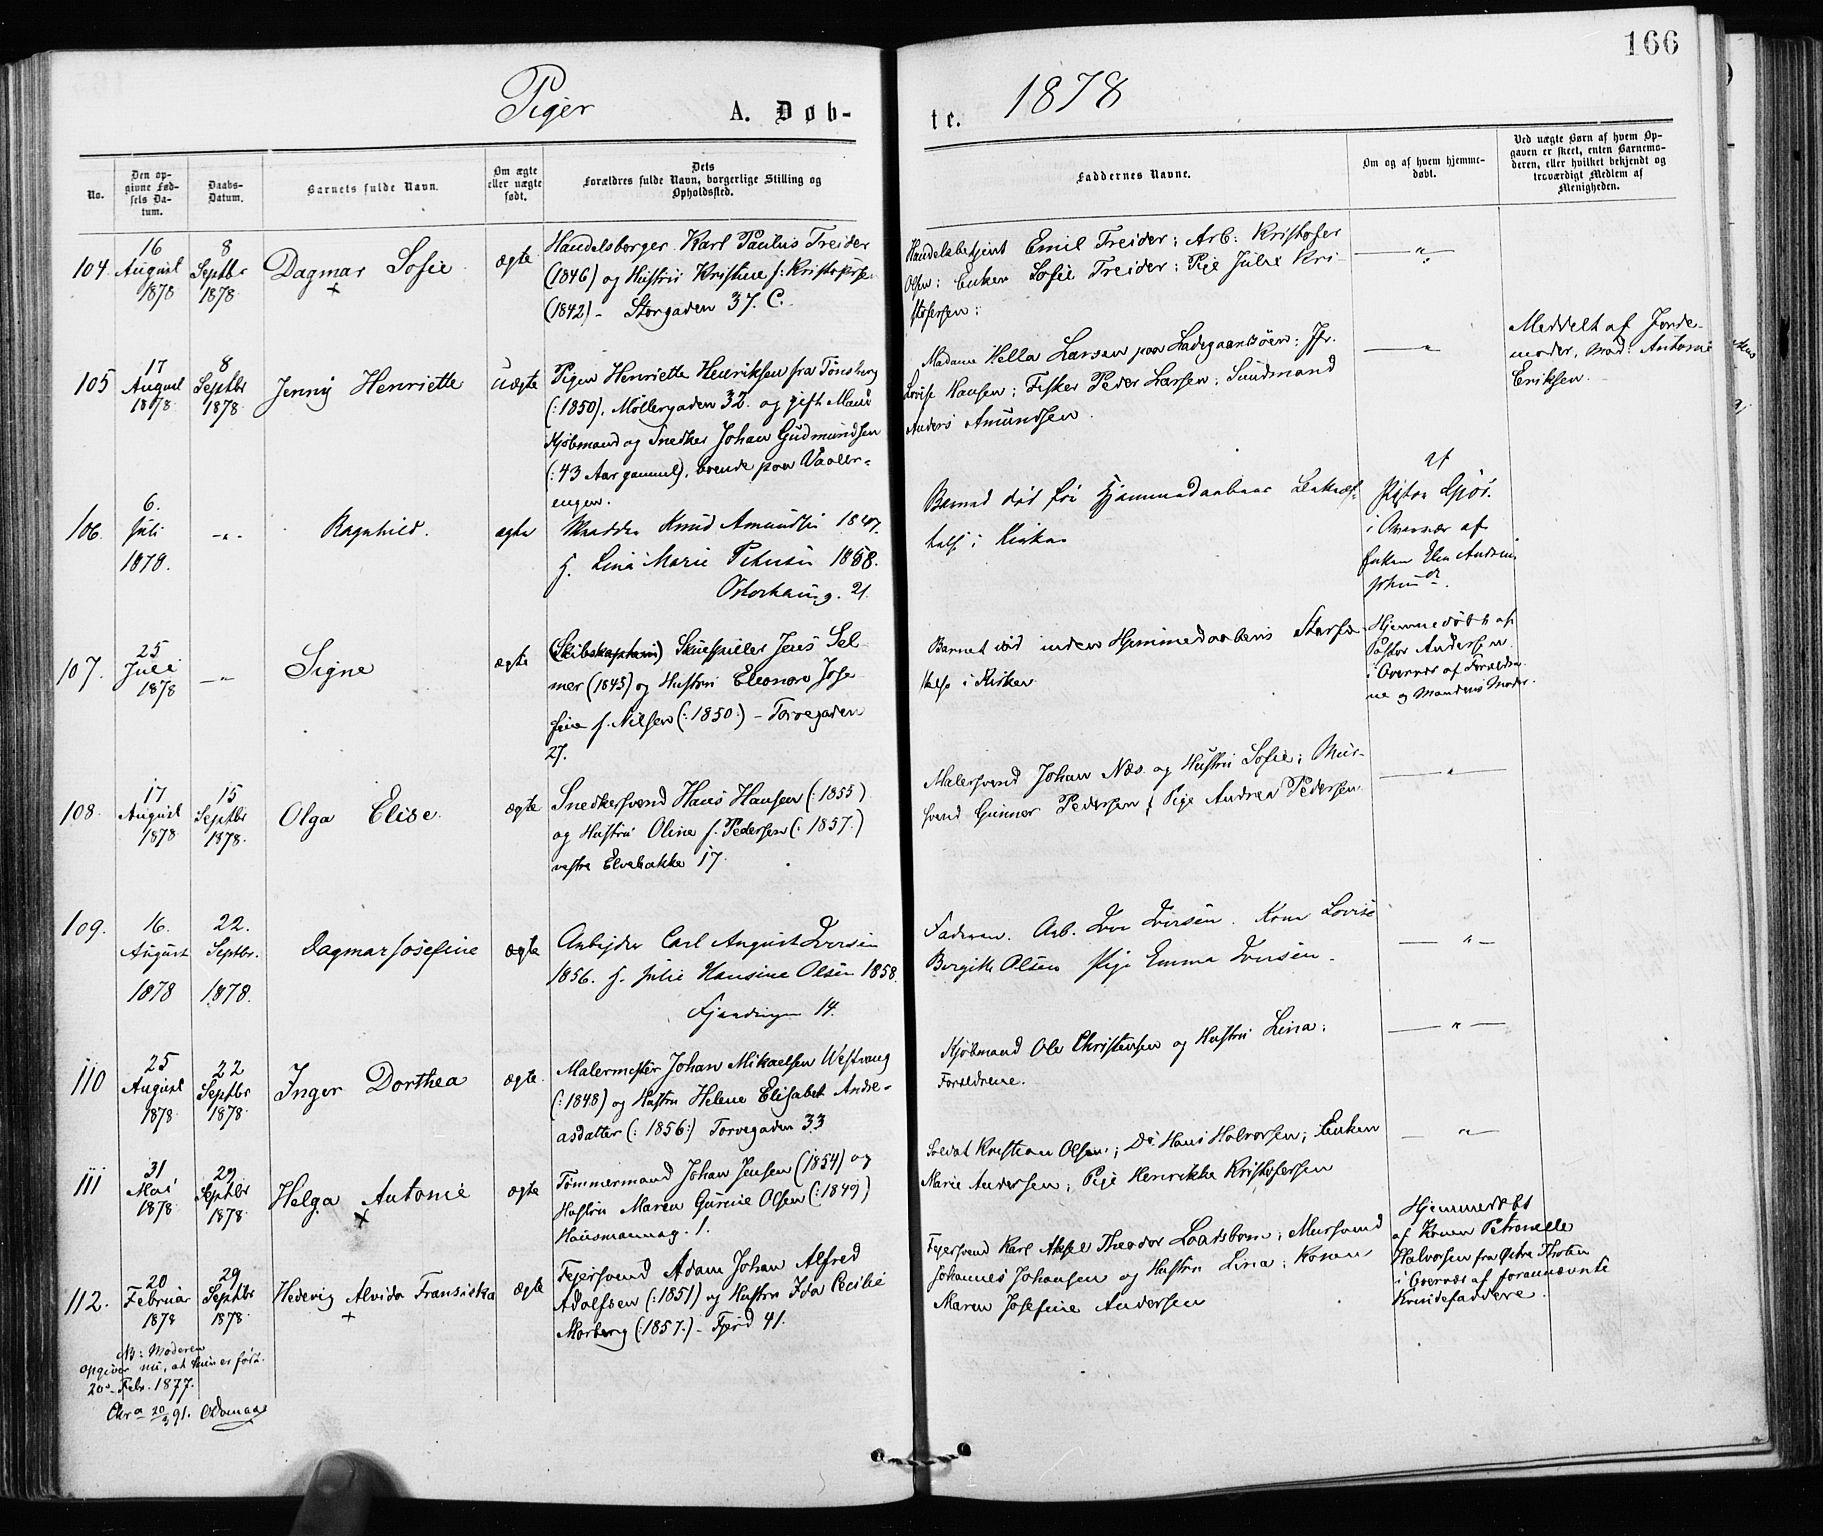 166
Piger A. Døb-
te. 1878
No.
Den op-
givne Fød-
sels Da-
tum.
Daabs-
Datum.
Barnets fulde Navn.
Om ægte
eller uægte
født.
Dets
Forældres fulde Navn, borgerlige Stilling og
Opholdssted.
Faddernes Navne.
Om og af hvem hjemme-
døbt.
Ved uægte Børn af hvem Op-
gaven er skeet, enten Barnemo-
deren, eller hvilket bekjendt og
troværdigt Medlem af
Menigheden.
104.
16
August
1878
8
Septbr
1878.
Dagmar Sofie
+
ægte
Handelsborger Karl Paulus Treider
(1846) og Hustru Kristine f: Kristofersen
(1842) - Storgaden 37. C.
Handelsbetjent Emil Treider; Arb: Kristofer
Olsen; Enken Sofie Treider; Pige Julie Kri-
stofersen:
— " —
105
17
August
1878.
8
Septbr
1878.
Jenny Henriette
Uægte
Pigen Henriette Henriksen fra Tønsberg
(:1850), Møllergaden 32. og gift Mand
Kjøbmand og Snedker Johan Gudmundsen
(:43 Aar gammel), boende paa Vaaler-
engen.
Madame Hella Larsen paa Ladegaardsøen; Jfr.
Lovise Hansen; Fisker Peder Larsen; Sundmand
Anders Amundsen.
— " —
Meddelt af Jorde-
moder, Mad: Antonie
Eriksen.
106.
6.
Juli
1878.
-"-
Ragnhild.
ægte
Knud Amundsen 1847.
f. Lina Marie Petersen 1858.
Osterhausg. 21.
Barnet død før Hjemmedaabens Bekræf-
telse i Kirken
af
Pastor
i Overvær af
Enken
107.
25
Juli
1878
-"-
Signe
ægte
(Skibskaptein) Skuespiller Jens Sel-
mer (1845) og Hustru Eleonore Jose-
fine f. Nilsen (:1850:) - Torvegaden
27.
Barnet død inden Hjemmedaabens Stadfæ-
stelse i Kirken
Hjemmedøbt af
Pastor Anderssen
i Overvær af Forældre-
ne og Mandens Moder.
108.
17
August
1878
15
Septbr
1878.
Olga Elise.
ægte
Snedkersvend Hans Hansen (:1855)
og Hustru Oline f. Pedersen (:1857.)
vestre Elvebakke 17.
Malersvend Johan Næs og Hustru Sofie; Mur-
svend Gunner Pedersen; Pige Andrea Pedersen
— " —
109.
16.
August
1878
22.
Septbr.
1878.
Dagmar Josefine
ægte
Arbejder Carl August Iversen
1856. f. Julie Hansine Olsen 1858.
Fjerdingen 14.
Faderen. Arb. Iver Iversen. Kone Lovise
Birgitte Olsen Pige Emma Iversen.
— " —
110
25
August
1878.
22
Septbr
1878.
Inger Dorthea
ægte.
Malermester Johan Mikaelsen Westvang
(:1848) og Hustru Helene Elisabet Andre-
asdatter (:1856:) Torvegaden 33
Kjøbmand Ole Christensen og Hustru Lina;
Forældrene.
— " —
111
31
Mai
1878.
29
Septbr
1878.
Helga Antonie
+
ægte
Tømmermand Johan Jensen (1854) og
Hustru Maren Gurine Olsen (:1849)
Hausmannsg. 1.
Soldat Kristian Olsen; Do Hans Halvorsen; Enken
Marie Andersen; Pige Henrikke Kristofersen
— " —
112.
20
Februar
1878
29
Septbr
1878.
Hedevig Alvida Fransiska
+
ægte
Fejersvend Adam Johan Alfred
Adolfsen (:1851) og Hustru Ida Cecilie
Morberg (:1857.) - Fjerd 41.
Fejersvend Karl Aksel Theodor Laadsbom; Mursvend
Johannes Johansen og Hustru Lina; Konen
Maren Josefine Andersen
Hjemmedøbt
af Konen Petronelle
Halvorsen fra Østre Thoten
i Overvær af forannævnte
Kvindefaddere.
NB: Moderen
opgiver nu, at hun er født
20de Febr. 1877.
Chra 20/3 91.